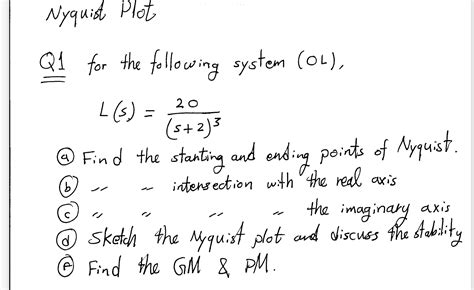 Nyquist Plot
Q1 for the following system (OL),
L(s) = 20 / (s+2)^3
(a) Find the starting and ending points of Nyquist.
(b) " " intersection with the real axis
(c) " " " " the imaginary axis
(d) Sketch the Nyquist plot and discuss the stability
(e) Find the GM & PM.